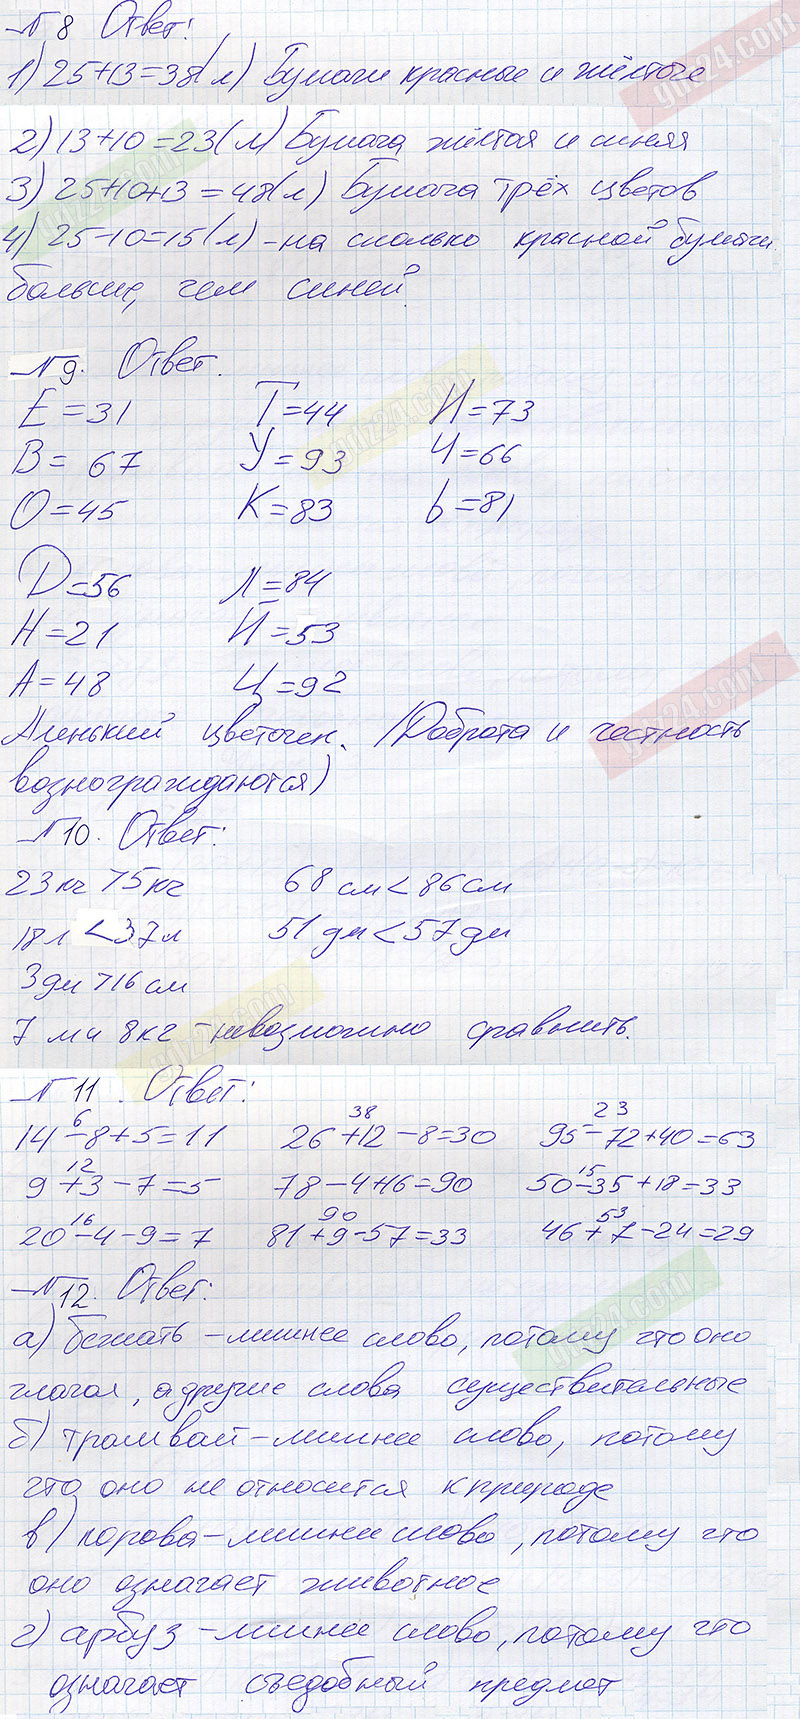 №8 Ответ:
1) 25+13=38(л) Бумаги красные и жёлтые
2) 13+10=23(л) Бумага жёлтая и синяя
3) 25+10+13=48(л) Бумага трёх цветов
4) 25-10=15(л) - на сколько красной бумаги
больше, чем синей.
№9. Ответ.
Е=31 Т=44 И=73
В=67 У=93 Ч=66
О=45 К=83 Ь=81
D=56 Л=84
Н=21 Й=53
А=48 Ц=92
Аленький цветочек. (Доброта и честность
вознограждаются)
№10. Ответ:
23кг>5кг 68см<86см
18л<37л 51дм<57дм
3дм>16см
7 м и 8кг - невозможно сравнить.
№11. Ответ:
6 38 23
14-8+5=11 26+12-8=30 95-72+40=63
12 15
9+3-7=5 78-4+16=90 50-35+18=33
16 90 53
20-4-9=7 81+9-57=33 46+7-24=29
№12. Ответ:
а) бежать - лишнее слово, потому что оно
глагол, а другие слова существительные
б) трамвай - лишнее слово, потому
что оно не относится к природе
в) корова - лишнее слово, потому что
оно означает животное
г) арбуз - лишнее слово, потому что
означает съедобный предмет
gdz24.com
gdz24.com
gdz24.com
gdz24.com
gdz24.com
gdz24.com